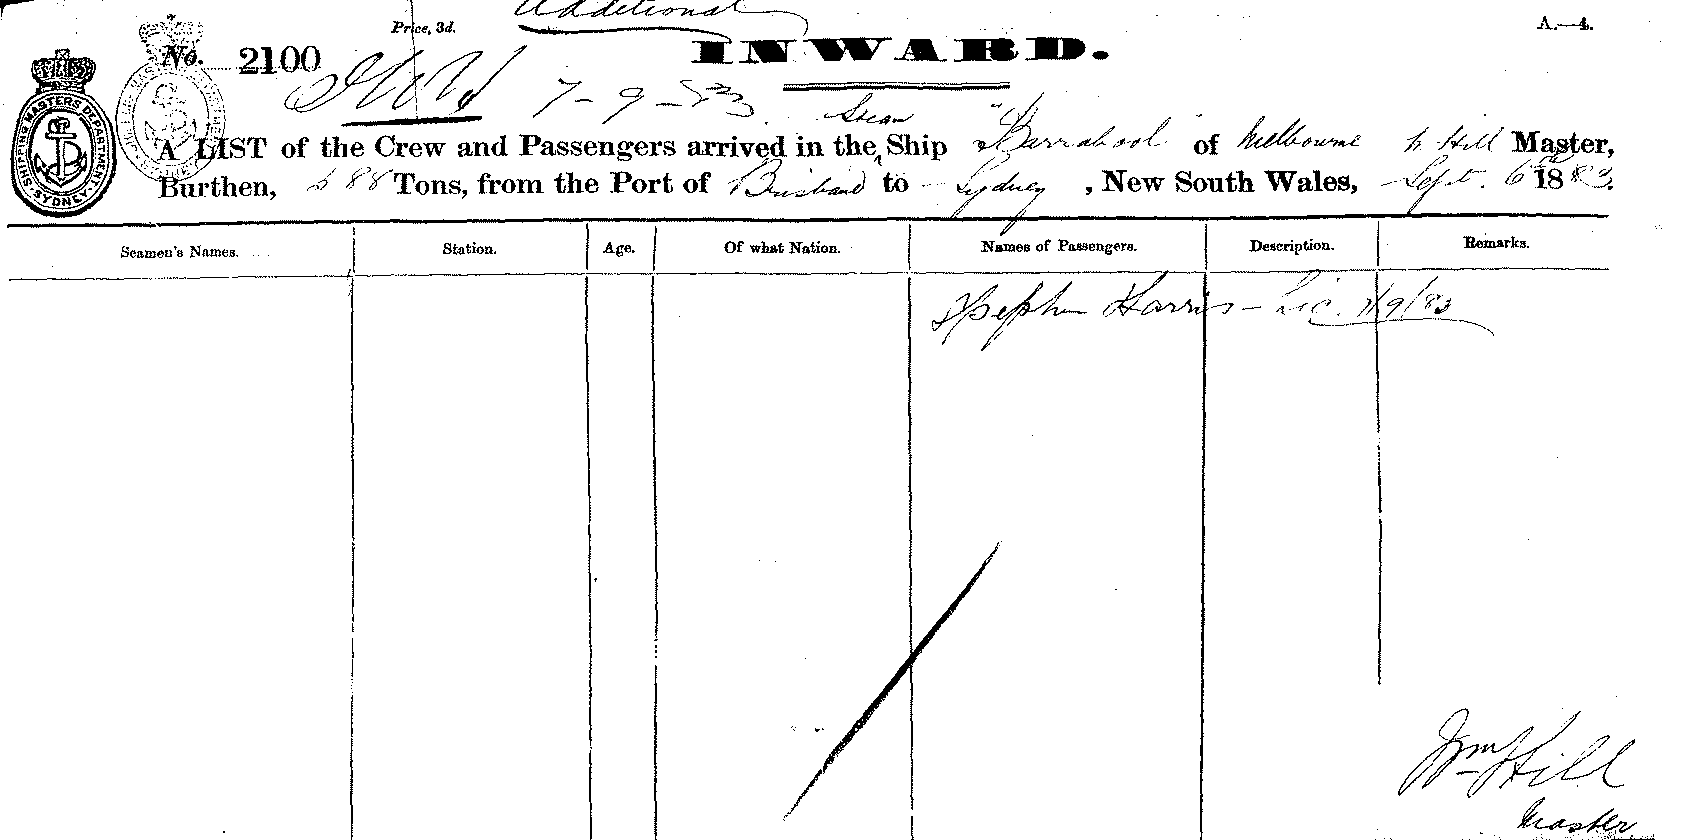 Additional
Price, 3d.
A.—4.
No. 2100
INWARD.
7-9-83
Steam
A LIST of the Crew and Passengers arrived in the Ship "Barrabool" of Melbourne W Hill Master,
Burthen, 588 Tons, from the Port of Brisbane to Sydney, New South Wales, Sept. 6th 1883.
SHIPPING MASTERS DEPARTMENT
SYDNEY
Seamen's Names. Station. Age. Of what Nation. Names of Passengers. Description. Remarks.
Harris - Lic. 7/9/83
Wm Hill
Master